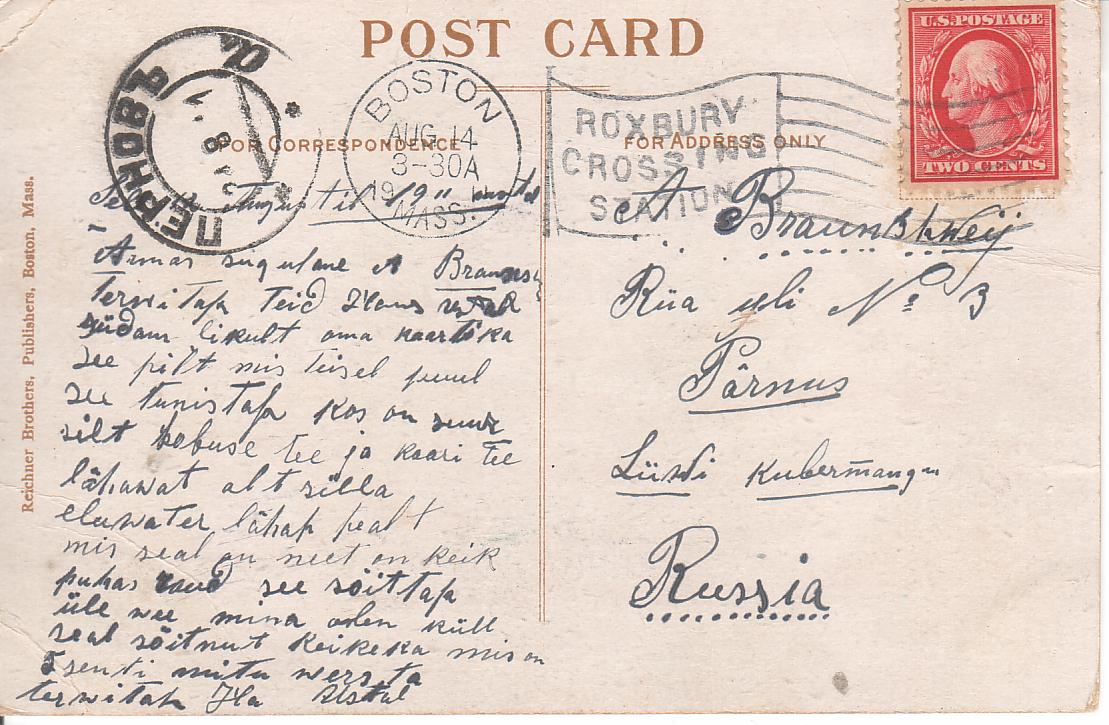 POST CARD
U.S. POSTAGE
TWO CENTS
ПЕРНОВЪ
BOSTON
AUG 14
3-30A
19
MASS.
ROXBURY
CROSSING
STATION
FOR CORRESPONDENCE
FOR ADDRESS ONLY
Reichner Brothers, Publishers, Boston, Mass.
Augustil 1911
Armas sugulane A
terwitap Teid
südamlikult oma kaartika
see pilt mis teisel puul
see tunistap kos on suur
silt hobuse tee ja kaari tee
lähawat alt silla
eluwater lähap pealt
mis seal on neet on keik
puhas raud see söittap
üle wee mina olen küll
seal söitnut keikeka mis on
senti mitu wersta
terwitap
A Braunshweij
Rüa uli No 3
Pärnus
Liiwi kubermangu
Russia